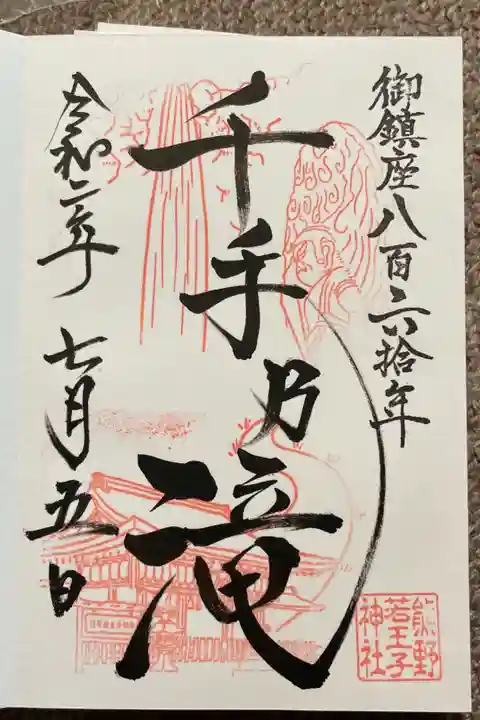 御鎮座八百六拾年
千手乃滝
令和二年 七月五日
熊野
若王子
神社